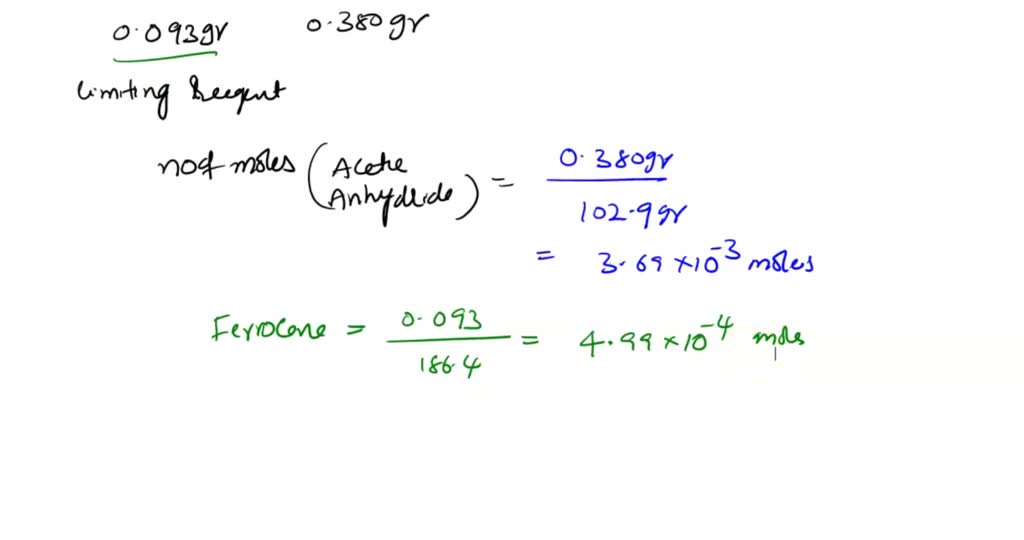 0.093gr 0.380gr
Limiting Reegent
no of moles (Acetic Anhydride) = 0.380gr / 102.9gr
= 3.69 × 10⁻³ moles
Ferrocene = 0.093 / 186.4 = 4.99 × 10⁻⁴ moles